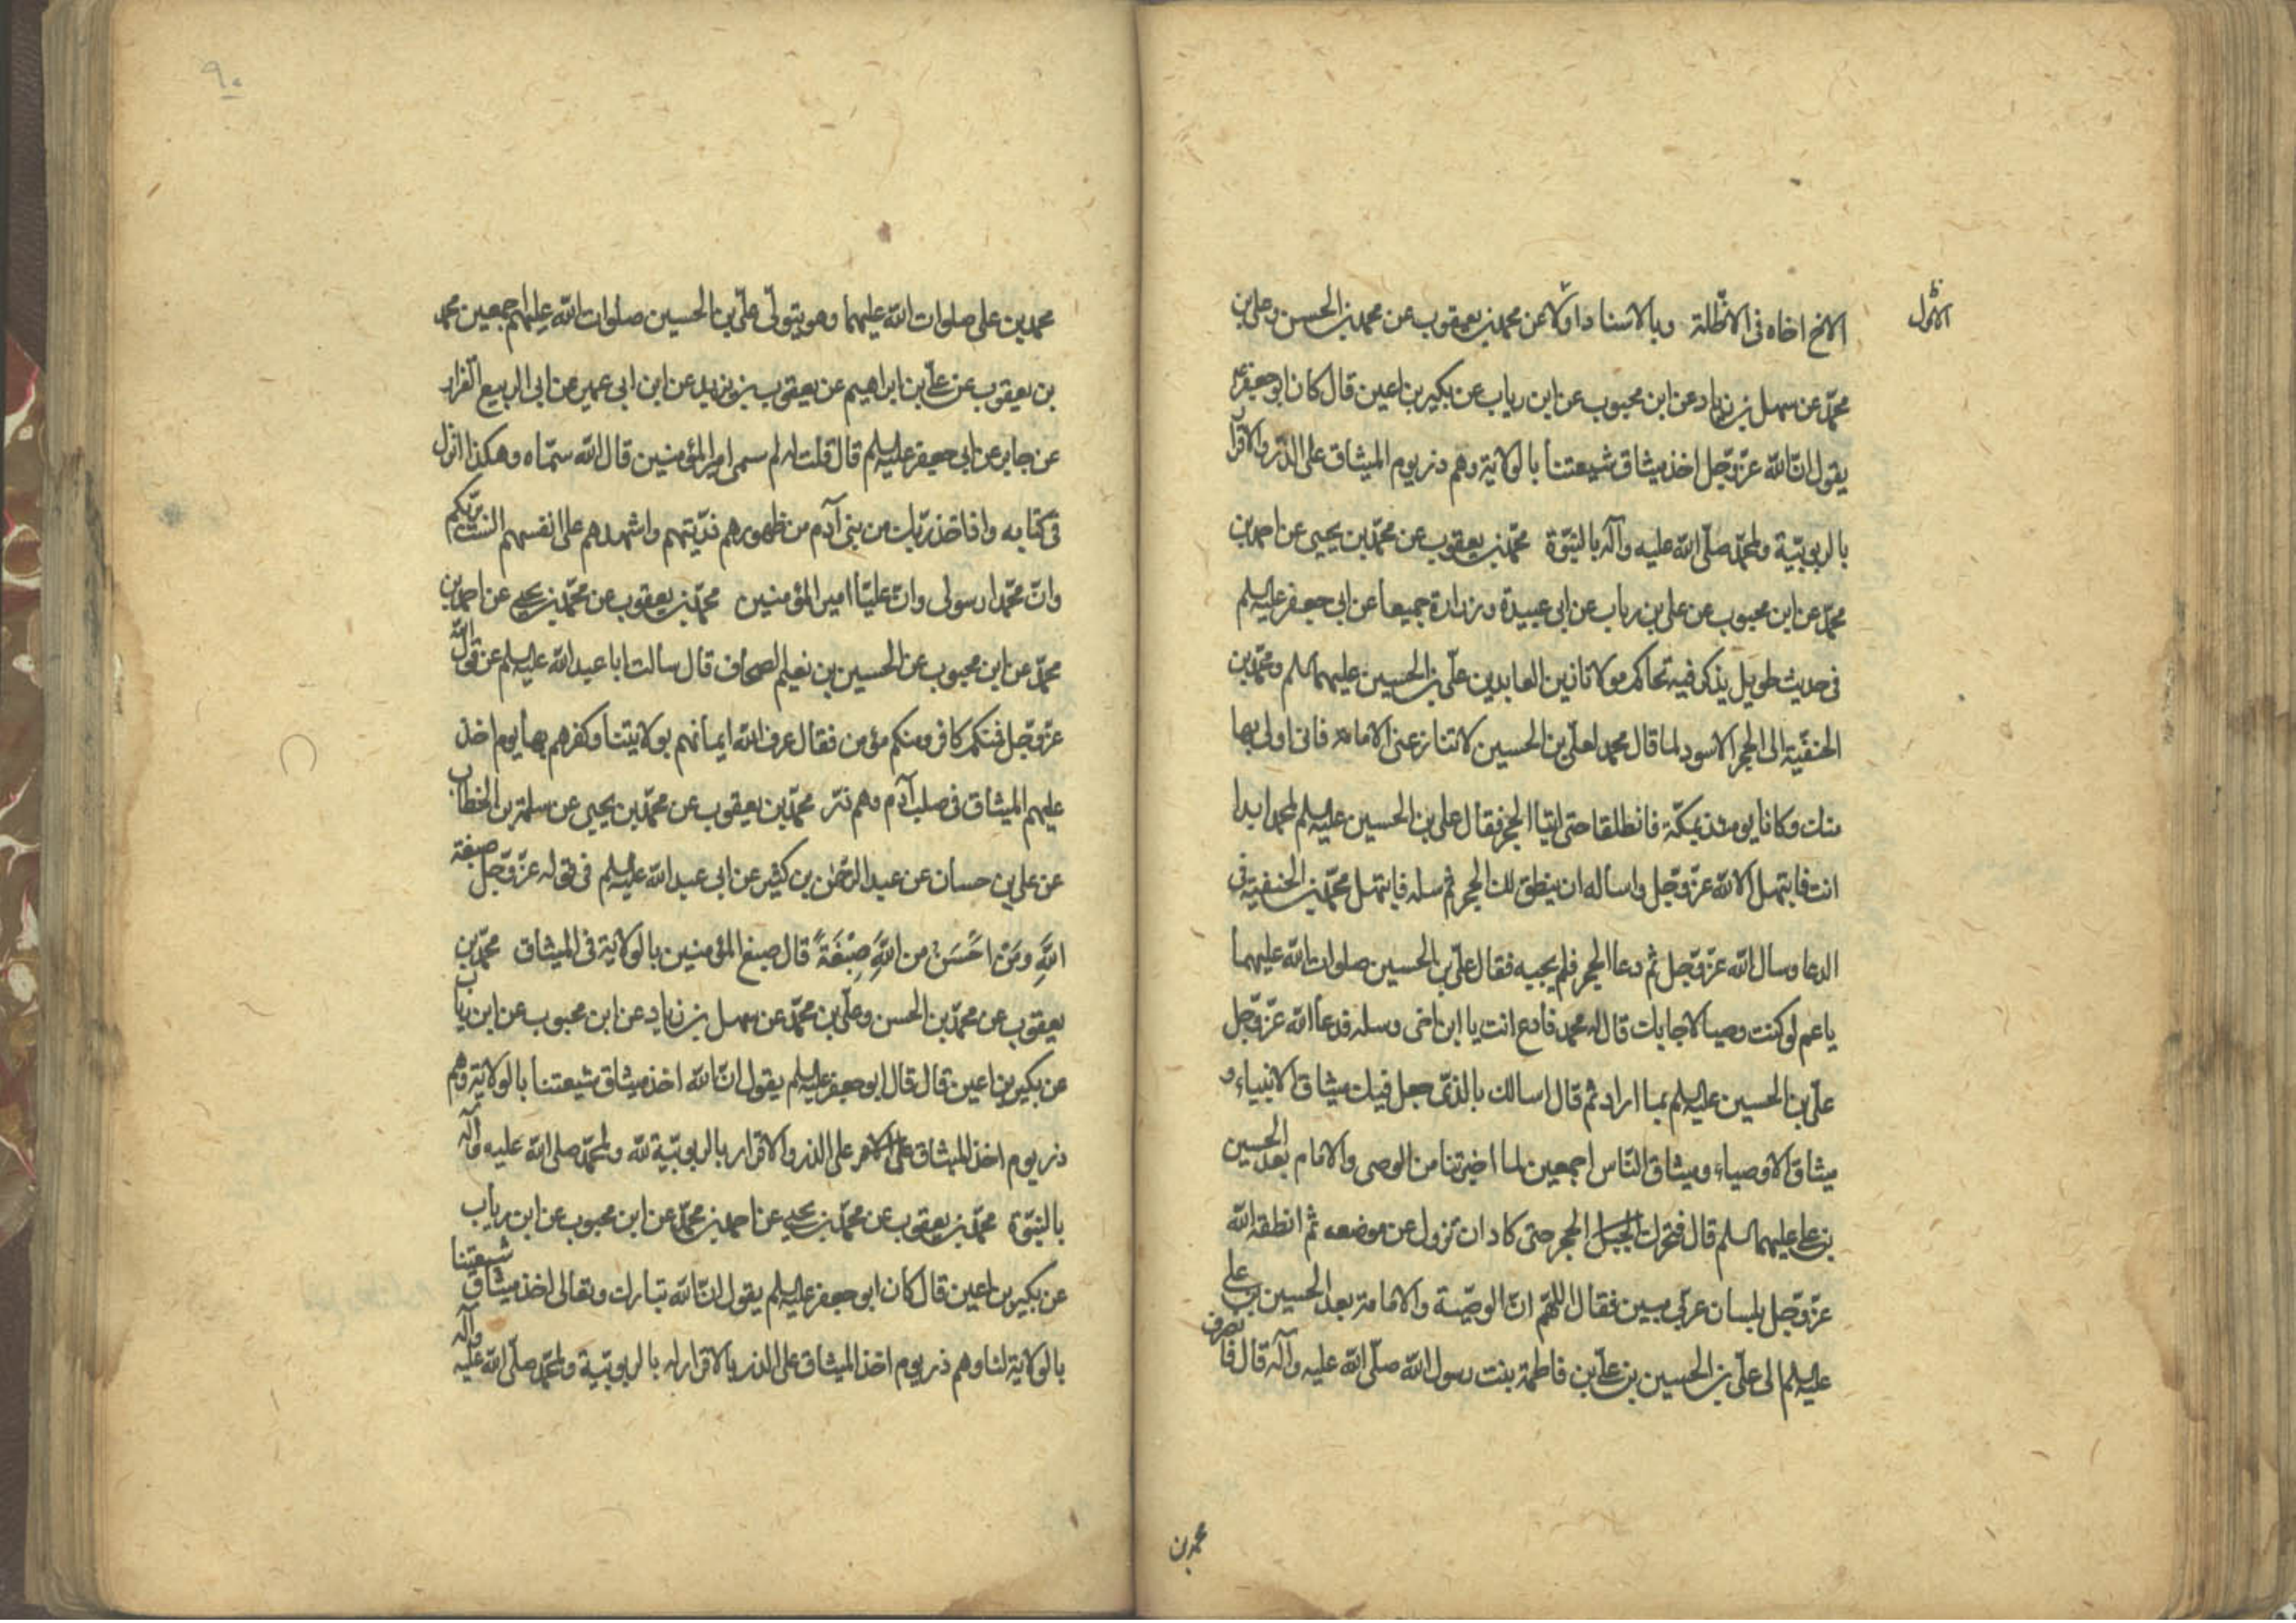 الاول
الاخ اخاه فى الاظلة وبالاسناد اولا عن محمد بن يعقوب عن محمد بن الحسن وعلى بن
محمد عن سهل بن زياد عن ابن محبوب عن ابن رياب عن بكير بن اعين قال كان ابو جعفر ع
يقول ان الله عز وجل اخذ ميثاق شيعتنا بالولاية وهم ذر يوم الميثاق على الذر والاقرار
بالربوبية ولمحمد صلى الله عليه وآله بالنبوة محمد بن يعقوب عن محمد بن يحيى عن احمد بن
محمد عن ابن محبوب عن على بن رياب عن ابى عبيدة وزرارة جميعا عن ابى جعفر عليه السلم
فى حديث طويل يذكر فيه تحاكم مولانا زين العابدين على بن الحسين عليهما السلم ومحمد بن
الحنفية الى الحجر الاسود لما قال محمد لعلى بن الحسين لا تنازعنى الامامة فانى اولى بها
منك وكانا يومئذ بمكة فانطلقا حتى اتيا الحجر فقال على بن الحسين عليه السلم لمحمد ابدا
انت فابتهل الا الله عز وجل واساله ان ينطق لك الحجر ثم سله فابتهل محمد بن الحنفية فى
الدعا وسال الله عز وجل ثم دعا الحجر فلم يجيبه فقال على بن الحسين صلوات الله عليهما
يا عم لو كنت وصيا لاجابك قال له محمد فادع انت يا ابن اخى وسله فدعا الله عز وجل
على بن الحسين عليه السلم بما اراد ثم قال اسالك بالذى جعل فيك ميثاق الانبياء و
ميثاق الاوصياء وميثاق الناس اجمعين لما اخبرتنا من الوصى والامام بعد الحسين
بن على عليهما السلم قال فتحرك الجبل الحجر حتى كاد ان تزول عن موضعه ثم انطقه الله
عز وجل بلسان عربى مبين فقال اللهم ان الوصية والامامة بعد الحسين بن على
عليه السلم الى على بن الحسين بن على بن فاطمة بنت رسول الله صلى الله عليه وآله قال فانصرف
محمد بن
٩٠
محمد بن على صلوات الله عليهما وهو يتولى على بن الحسين صلوات الله عليهم اجمعين محمد
بن يعقوب عن على بن ابراهيم عن يعقوب بن يزيد عن ابن ابى عمير عن ابى الربيع القزاز
عن جابر عن ابى جعفر عليه السلم قال قلت له لم سمى امير المؤمنين قال الله سماه وهكذا انزل
فى كتابه واذ اخذ ربك من بنى آدم من ظهورهم ذريتهم واشهدهم على انفسهم الست بربكم
وان محمدا رسولى وان عليا امير المؤمنين محمد بن يعقوب عن محمد بن يحيى عن احمد بن
محمد عن ابن محبوب عن الحسين بن نعيم الصحاف قال سالت ابا عبد الله عليه السلم عن قول الله
عز وجل فمنكم كافر ومنكم مؤمن فقال عرف الله ايمانهم بولايتنا وكفرهم بها يوم اخذ
عليهم الميثاق فى صلب آدم وهم ذر محمد بن يعقوب عن محمد بن يحيى عن سلمة بن الخطاب
عن على بن حسان عن عبد الرحمن بن كثير عن ابى عبد الله عليه السلم فى قوله عز وجل صبغة
اللَّهِ وَمَنْ احْسَنُ من اللَّهِ صِبْغَةً قال صبغ المؤمنين بالولاية فى الميثاق محمد بن
يعقوب عن محمد بن الحسن وعلى بن محمد عن سهل بن زياد عن ابن محبوب عن ابن رياب
عن بكير بن اعين قال قال ابو جعفر عليه السلم يقول ان الله اخذ ميثاق شيعتنا بالولاية وهم
ذر يوم اخذ الميثاق على الامر على الذر والاقرار بالربوبية لله ولمحمد صلى الله عليه وآله
بالنبوة محمد بن يعقوب عن محمد بن يحيى عن احمد بن محمد عن ابن محبوب عن ابن رياب
عن بكير بن اعين قال كان ابو جعفر عليه السلم يقول ان الله تبارك وتعالى اخذ ميثاق شيعتنا
بالولاية لنا وهم ذر يوم اخذ الميثاق على الذر بالاقرار له بالربوبية ولمحمد صلى الله عليه وآله